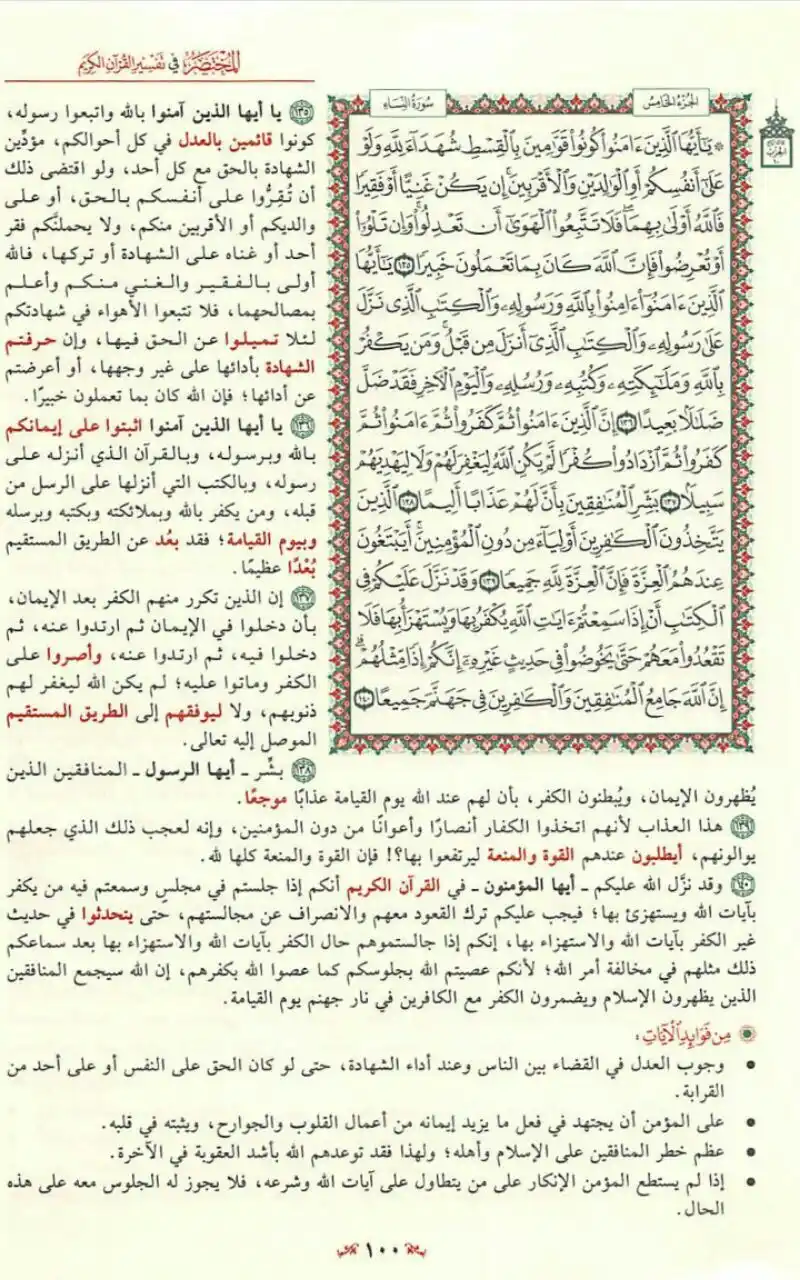 المختصر في تفسير القرآن الكريم
الجزء الخامس
سورة النساء
الحزب ١٠
۞ يَٰٓأَيُّهَا ٱلَّذِينَ ءَامَنُوا۟ كُونُوا۟ قَوَّٰمِينَ بِٱلْقِسْطِ شُهَدَآءَ لِلَّهِ وَلَوْ
عَلَىٰٓ أَنفُسِكُمْ أَوِ ٱلْوَٰلِدَيْنِ وَٱلْأَقْرَبِينَ ۚ إِن يَكُنْ غَنِيًّا أَوْ فَقِيرًا
فَٱللَّهُ أَوْلَىٰ بِهِمَا ۖ فَلَا تَتَّبِعُوا۟ ٱلْهَوَىٰٓ أَن تَعْدِلُوا۟ ۚ وَإِن تَلْوُۥٓا۟
أَوْ تُعْرِضُوا۟ فَإِنَّ ٱللَّهَ كَانَ بِمَا تَعْمَلُونَ خَبِيرًا ١٣٥ يَٰٓأَيُّهَا
ٱلَّذِينَ ءَامَنُوٓا۟ ءَامِنُوا۟ بِٱللَّهِ وَرَسُولِهِۦ وَٱلْكِتَٰبِ ٱلَّذِى نَزَّلَ
عَلَىٰ رَسُولِهِۦ وَٱلْكِتَٰبِ ٱلَّذِىٓ أَنزَلَ مِن قَبْلُ ۚ وَمَن يَكْفُرْ
بِٱللَّهِ وَمَلَٰٓئِكَتِهِۦ وَكُتُبِهِۦ وَرُسُلِهِۦ وَٱلْيَوْمِ ٱلْءَاخِرِ فَقَدْ ضَلَّ
ضَلَٰلًۢا بَعِيدًا ١٣٦ إِنَّ ٱلَّذِينَ ءَامَنُوا۟ ثُمَّ كَفَرُوا۟ ثُمَّ ءَامَنُوا۟ ثُمَّ
كَفَرُوا۟ ثُمَّ ٱزْدَادُوا۟ كُفْرًا لَّمْ يَكُنِ ٱللَّهُ لِيَغْفِرَ لَهُمْ وَلَا لِيَهْدِيَهُمْ
سَبِيلًۢا ١٣٧ بَشِّرِ ٱلْمُنَٰفِقِينَ بِأَنَّ لَهُمْ عَذَابًا أَلِيمًا ١٣٨ ٱلَّذِينَ
يَتَّخِذُونَ ٱلْكَٰفِرِينَ أَوْلِيَآءَ مِن دُونِ ٱلْمُؤْمِنِينَ ۚ أَيَبْتَغُونَ
عِندَهُمُ ٱلْعِزَّةَ فَإِنَّ ٱلْعِزَّةَ لِلَّهِ جَمِيعًا ١٣٩ وَقَدْ نَزَّلَ عَلَيْكُمْ فِى
ٱلْكِتَٰبِ أَنْ إِذَا سَمِعْتُمْ ءَايَٰتِ ٱللَّهِ يُكْفَرُ بِهَا وَيُسْتَهْزَأُ بِهَا فَلَا
تَقْعُدُوا۟ مَعَهُمْ حَتَّىٰ يَخُوضُوا۟ فِى حَدِيثٍ غَيْرِهِۦٓ ۚ إِنَّكُمْ إِذًا مِّثْلُهُمْ ۗ
إِنَّ ٱللَّهَ جَامِعُ ٱلْمُنَٰفِقِينَ وَٱلْكَٰفِرِينَ فِى جَهَنَّمَ جَمِيعًا ١٤٠
١٣٥ يا أيها الذين آمنوا بالله واتبعوا رسوله،
كونوا قائمين بالعدل في كل أحوالكم، مؤدِّين
الشهادة بالحق مع كل أحد، ولو اقتضى ذلك
أن تُقِرُّوا على أنفسكم بالحق، أو على
والديكم أو الأقربين منكم، ولا يحملنَّكم فقر
أحد أو غناه على الشهادة أو تركها، فالله
أولى بالفقير والغني منكم وأعلم
بمصالحهما، فلا تتبعوا الأهواء في شهادتكم
لئلا تميلوا عن الحق فيها، وإن حرفتم
الشهادة بأدائها على غير وجهها، أو أعرضتم
عن أدائها؛ فإن الله كان بما تعملون خبيرًا.
١٣٦ يا أيها الذين آمنوا اثبتوا على إيمانكم
بالله وبرسوله، وبالقرآن الذي أنزله على
رسوله، وبالكتب التي أنزلها على الرسل من
قبله، ومن يكفر بالله وبملائكته وبكتبه وبرسله
وبيوم القيامة؛ فقد بعُد عن الطريق المستقيم
بُعْدًا عظيمًا.
١٣٧ إن الذين تكرر منهم الكفر بعد الإيمان،
بأن دخلوا في الإيمان ثم ارتدوا عنه، ثم
دخلوا فيه، ثم ارتدوا عنه، وأصروا على
الكفر وماتوا عليه؛ لم يكن الله ليغفر لهم
ذنوبهم، ولا ليوفقهم إلى الطريق المستقيم
الموصل إليه تعالى.
١٣٨ بشِّر ـ أيها الرسول ـ المنافقين الذين
يُظهرون الإيمان، ويُبطنون الكفر، بأن لهم عند الله يوم القيامة عذابًا موجعًا.
١٣٩ هذا العذاب لأنهم اتخذوا الكفار أنصارًا وأعوانًا من دون المؤمنين، وإنه لعجب ذلك الذي جعلهم
يوالونهم، أيطلبون عندهم القوة والمنعة ليرتفعوا بها؟! فإن القوة والمنعة كلها لله.
١٤٠ وقد نزَّل الله عليكم ـ أيها المؤمنون ـ في القرآن الكريم أنكم إذا جلستم في مجلسٍ وسمعتم فيه من يكفر
بآيات الله ويستهزئ بها؛ فيجب عليكم ترك القعود معهم والانصراف عن مجالستهم، حتى يتحدثوا في حديث
غير الكفر بآيات الله والاستهزاء بها، إنكم إذا جالستموهم حال الكفر بآيات الله والاستهزاء بها بعد سماعكم
ذلك مثلهم في مخالفة أمر الله؛ لأنكم عصيتم الله بجلوسكم كما عصوا الله بكفرهم، إن الله سيجمع المنافقين
الذين يظهرون الإسلام ويضمرون الكفر مع الكافرين في نار جهنم يوم القيامة.
من فوائد الآيات:
• وجوب العدل في القضاء بين الناس وعند أداء الشهادة، حتى لو كان الحق على النفس أو على أحد من
القرابة.
• على المؤمن أن يجتهد في فعل ما يزيد إيمانه من أعمال القلوب والجوارح، ويثبته في قلبه.
• عظم خطر المنافقين على الإسلام وأهله؛ ولهذا فقد توعدهم الله بأشد العقوبة في الآخرة.
• إذا لم يستطع المؤمن الإنكار على من يتطاول على آيات الله وشرعه، فلا يجوز له الجلوس معه على هذه
الحال.
١٠٠